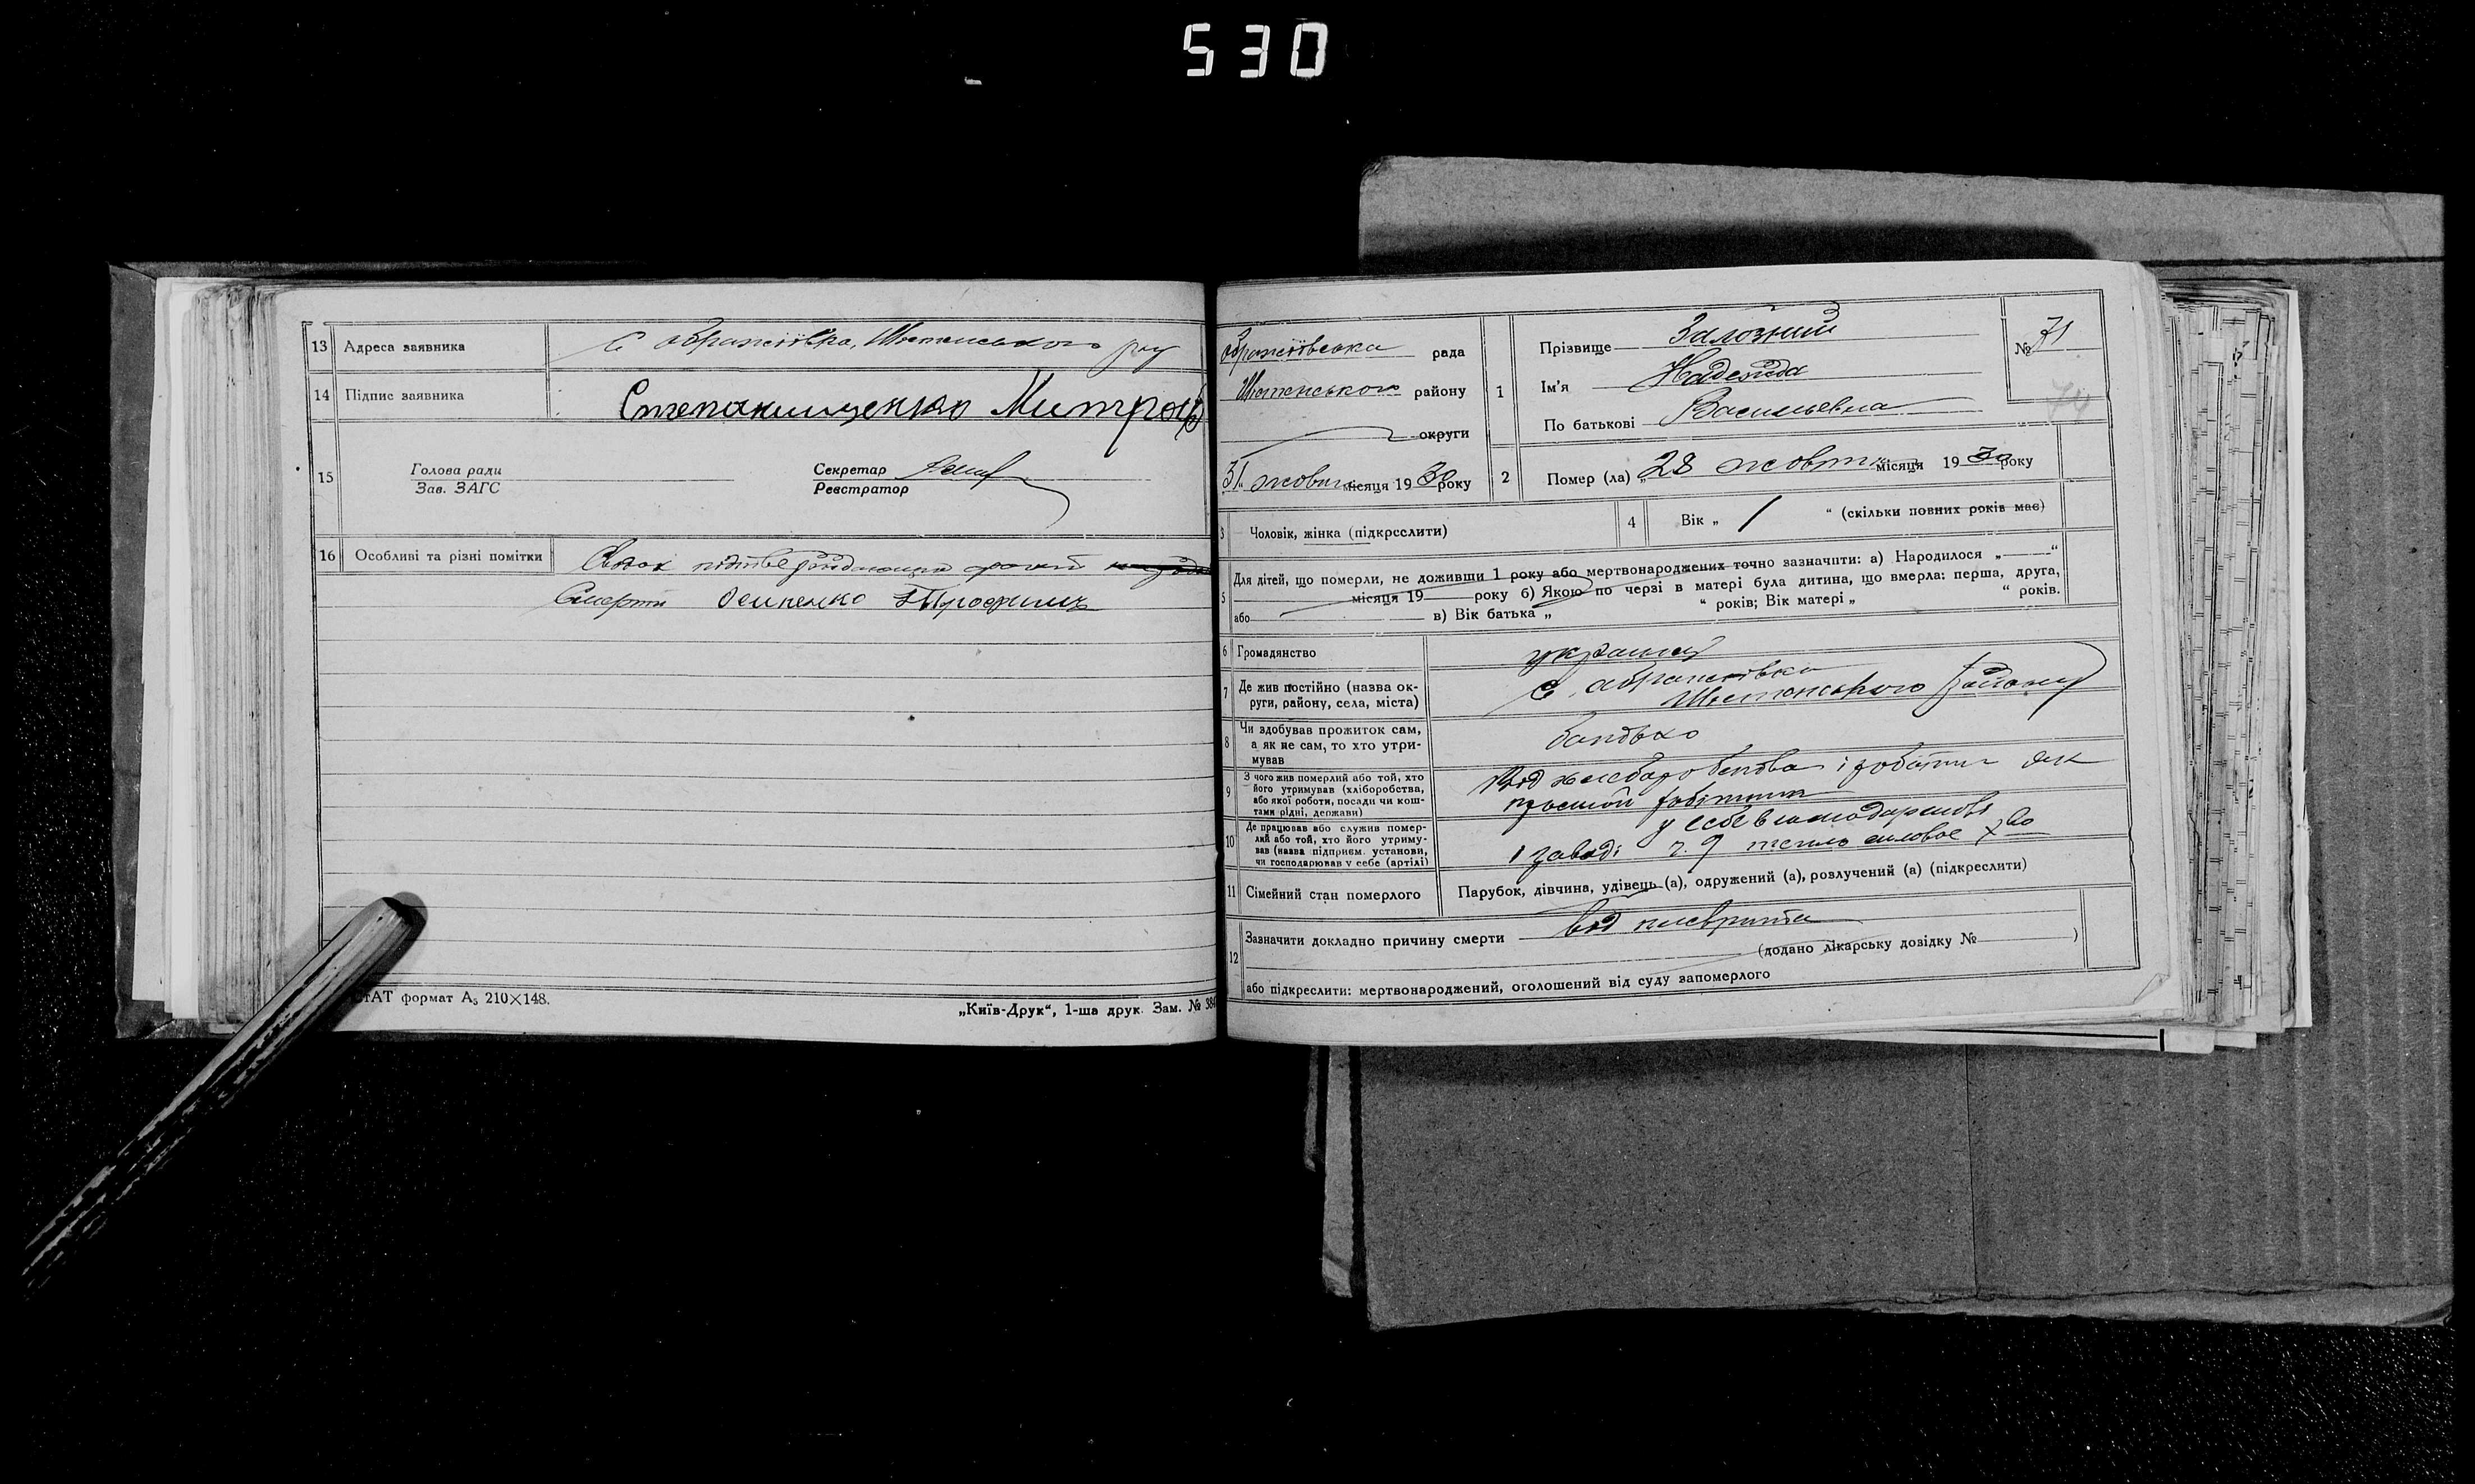 530
13 Адреса заявника с Ображіївка, Шостенського р-ну
14 Підпис заявника Степанищенко Митроф
15 Голова ради Секретар
Зав. ЗАГС Реєстратор
16 Особливі та різні помітки
Смерти Осипенко Трофим
СТАТ формат А₅ 210×148. „Київ-Друк“, 1-ша друк. Зам. № 384
Ображіївська рада
Шостенського району
округи
31 жовтн місяця 1930 року
1 Прізвище Залозний
Ім'я Надежда
По батькові Васильевна
№ 71
74
2 Помер (ла) „28 жовтн місяця 1930 року
3 Чоловік, жінка (підкреслити) 4 Вік „ 1 “ (скільки повних років має)
5 Для дітей, що померли, не доживши 1 року або мертвонароджених точно зазначити: а) Народилося „ “
місяця 19 року б) Якою по черзі в матері була дитина, що вмерла: перша, друга,
або в) Вік батька „ “ років; Вік матері „ “ років.
6 Громадянство
7 Де жив постійно (назва ок-
руги, району, села, міста)
с. Ображіївка
Шостенського району
8 Чи здобував прожиток сам,
а як не сам, то хто утри-
мував
батько
9 З чого жив померлий або той, хто
його утримував (хліборобства,
або якої роботи, посади чи кош-
тами рідні, держави)
Від хлеборобства і роботи як
простой робітник
10 Де працював або служив помер-
лий або той, хто його утриму-
вав (назва підприєм. установи,
чи господарював у себе (артілі)
у себе в господарстві
і заводі ч. 9 тепло силовое х-во
11 Сімейний стан померлого Парубок, дівчина, удівець (а), одружений (а), розлучений (а) (підкреслити)
12 Зазначити докладно причину смерти від плевріта
(додано лікарську довідку № )
або підкреслити: мертвонароджений, оголошений від суду запомерлого